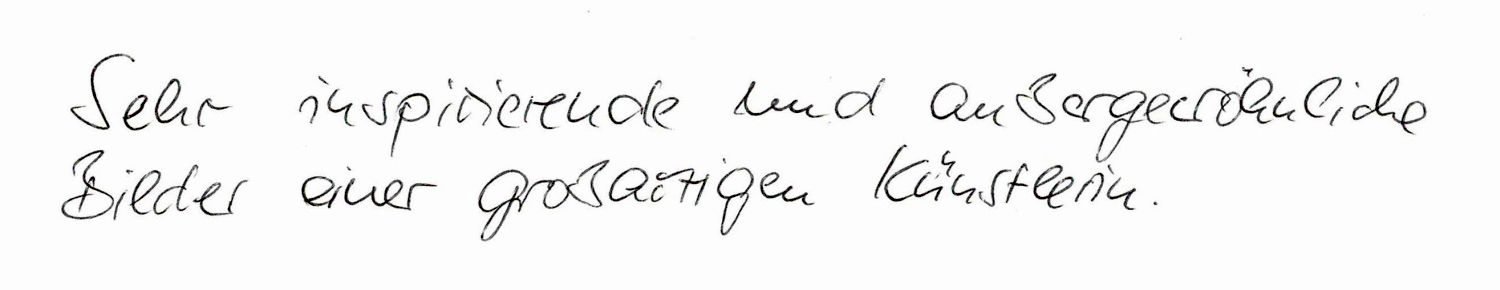 Sehr inspirierende und außergewöhnliche
Bilder einer großartigen Künstlerin.